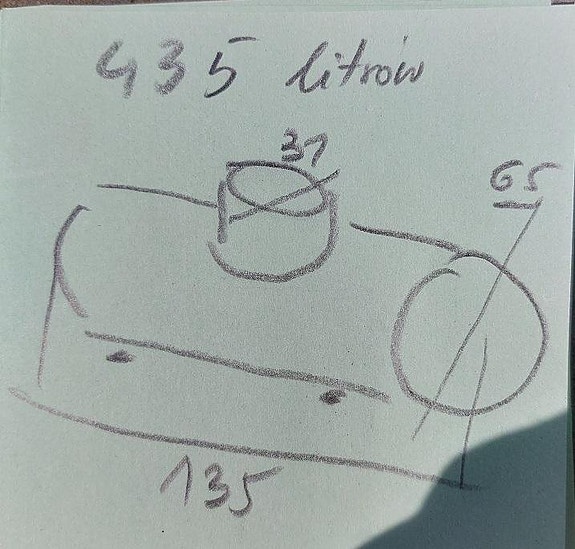 435 litrów
37
65
135